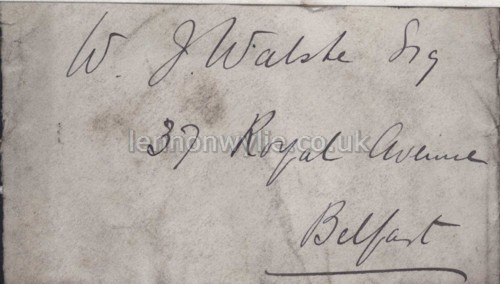 W. J. Walshe Esq
37 Royal Avenue
lennonwylie.co.uk
Belfast